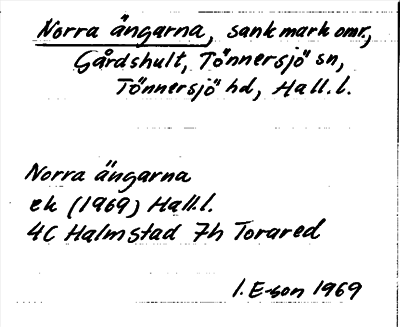 Norra ängarna, sank mark omr,
Gårdshult, Tönnersjö sn,
Tönnersjö hd, Hall.l.
Norra ängarna
ek (1969) Hall.l.
4C Halmstad 7h Torared
I. E-son 1969